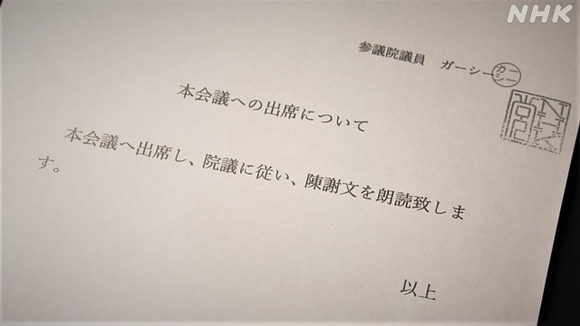 NHK
参議院議員 ガーシー
ガーシー
本会議への出席について
本会議へ出席し、院議に従い、陳謝文を朗読致しま
す。
以上